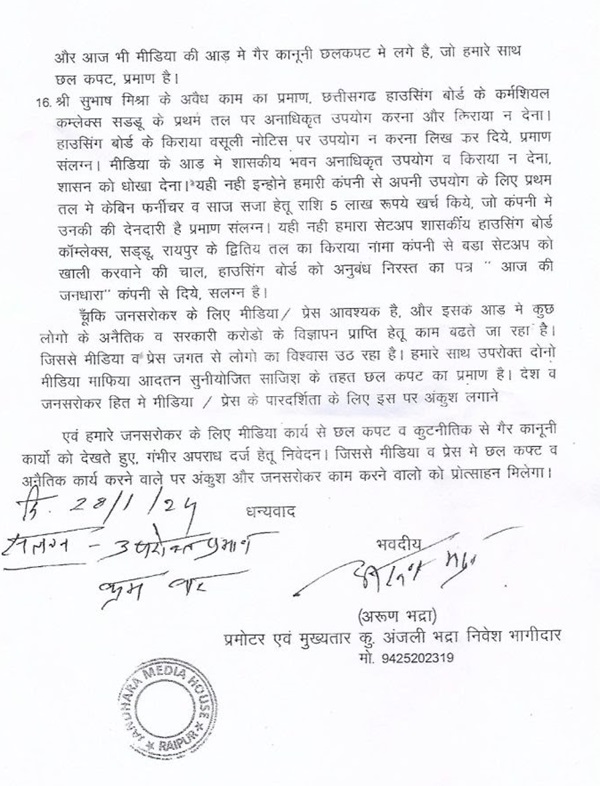 और आज भी मीडिया की आड़ मे गैर कानूनी छलकपट मे लगे है, जो हमारे साथ
छल कपट, प्रमाण है।
16. श्री सुभाष मिश्रा के अवैध काम का प्रमाण, छत्तीसगढ हाउसिंग बोर्ड के कर्मशियल
कम्लेक्स सडडू के प्रथम तल पर अनाधिकृत उपयोग करना और किराया न देना।
हाउसिंग बोर्ड के किराया वसूली नोटिस पर उपयोग न करना लिख कर दिये, प्रमाण
संलग्न। मीडिया के आड मे शासकीय भवन अनाधिकृत उपयोग व किराया न देना,
शासन को धोखा देना। यही नही इन्होने हमारी कंपनी से अपनी उपयोग के लिए प्रथम
तल मे केबिन फर्नीचर व साज सजा हेतू राशि 5 लाख रूपये खर्च किये, जो कंपनी मे
उनकी की देनदारी है प्रमाण संलग्न। यही नही हमारा सेटअप शासकीय हाउसिंग बोर्ड
कॉम्लेक्स, सड्डू, रायपुर के द्वितिय तल का किराया नामा कंपनी से बडा सेटअप को
खाली करवाने की चाल, हाउसिंग बोर्ड को अनुबंध निरस्त का पत्र " आज की
जनधारा" कंपनी से दिये, सलग्न है।
चूँकि जनसरोकर के लिए मीडिया/ प्रेस आवश्यक है, और इसके आड मे कुछ
लोगो के अनैतिक व सरकारी करोडो के विज्ञापन प्राप्ति हेतू काम बढते जा रहा है।
जिससे मीडिया व प्रेस जगत से लोगो का विश्वास उठ रहा है। हमारे साथ उपरोक्त दोनो
मीडिया माफिया आदतन सुनीयोजित साजिश के तहत छल कपट का प्रमाण है। देश व
जनसरोकर हित मे मीडिया / प्रेस के पारदर्शिता के लिए इस पर अंकुश लगाने
एवं हमारे जनसरोकर के लिए मीडिया कार्य से छल कपट व कुटनीतिक से गैर कानूनी
कार्यो को देखते हुए, गंभीर अपराध दर्ज हेतू निवेदन। जिससे मीडिया व प्रेस मे छल कफ्ट व
अनैतिक कार्य करने वाले पर अंकुश और जनसरोकर काम करने वालो को प्रोत्साहन मिलेगा।
दि. 28/1/24
धन्यवाद
सलग्न - उपरोक्त प्रमाण
क्रम वार
भवदीय
(अरूण भद्रा)
प्रमोटर एवं मुख्यतार कु. अंजली भद्रा निवेश भागीदार
मो. 9425202319
JANDHARA MEDIA HOUSE
RAIPUR